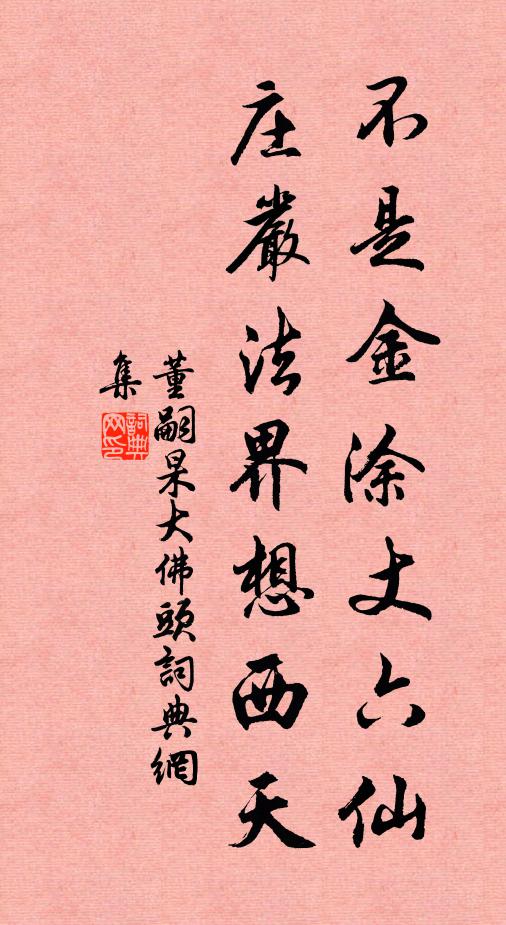 不是金涂丈六仙
庄嚴法界想西天
董嗣杲大佛頭詞典網
集
詞典
网印